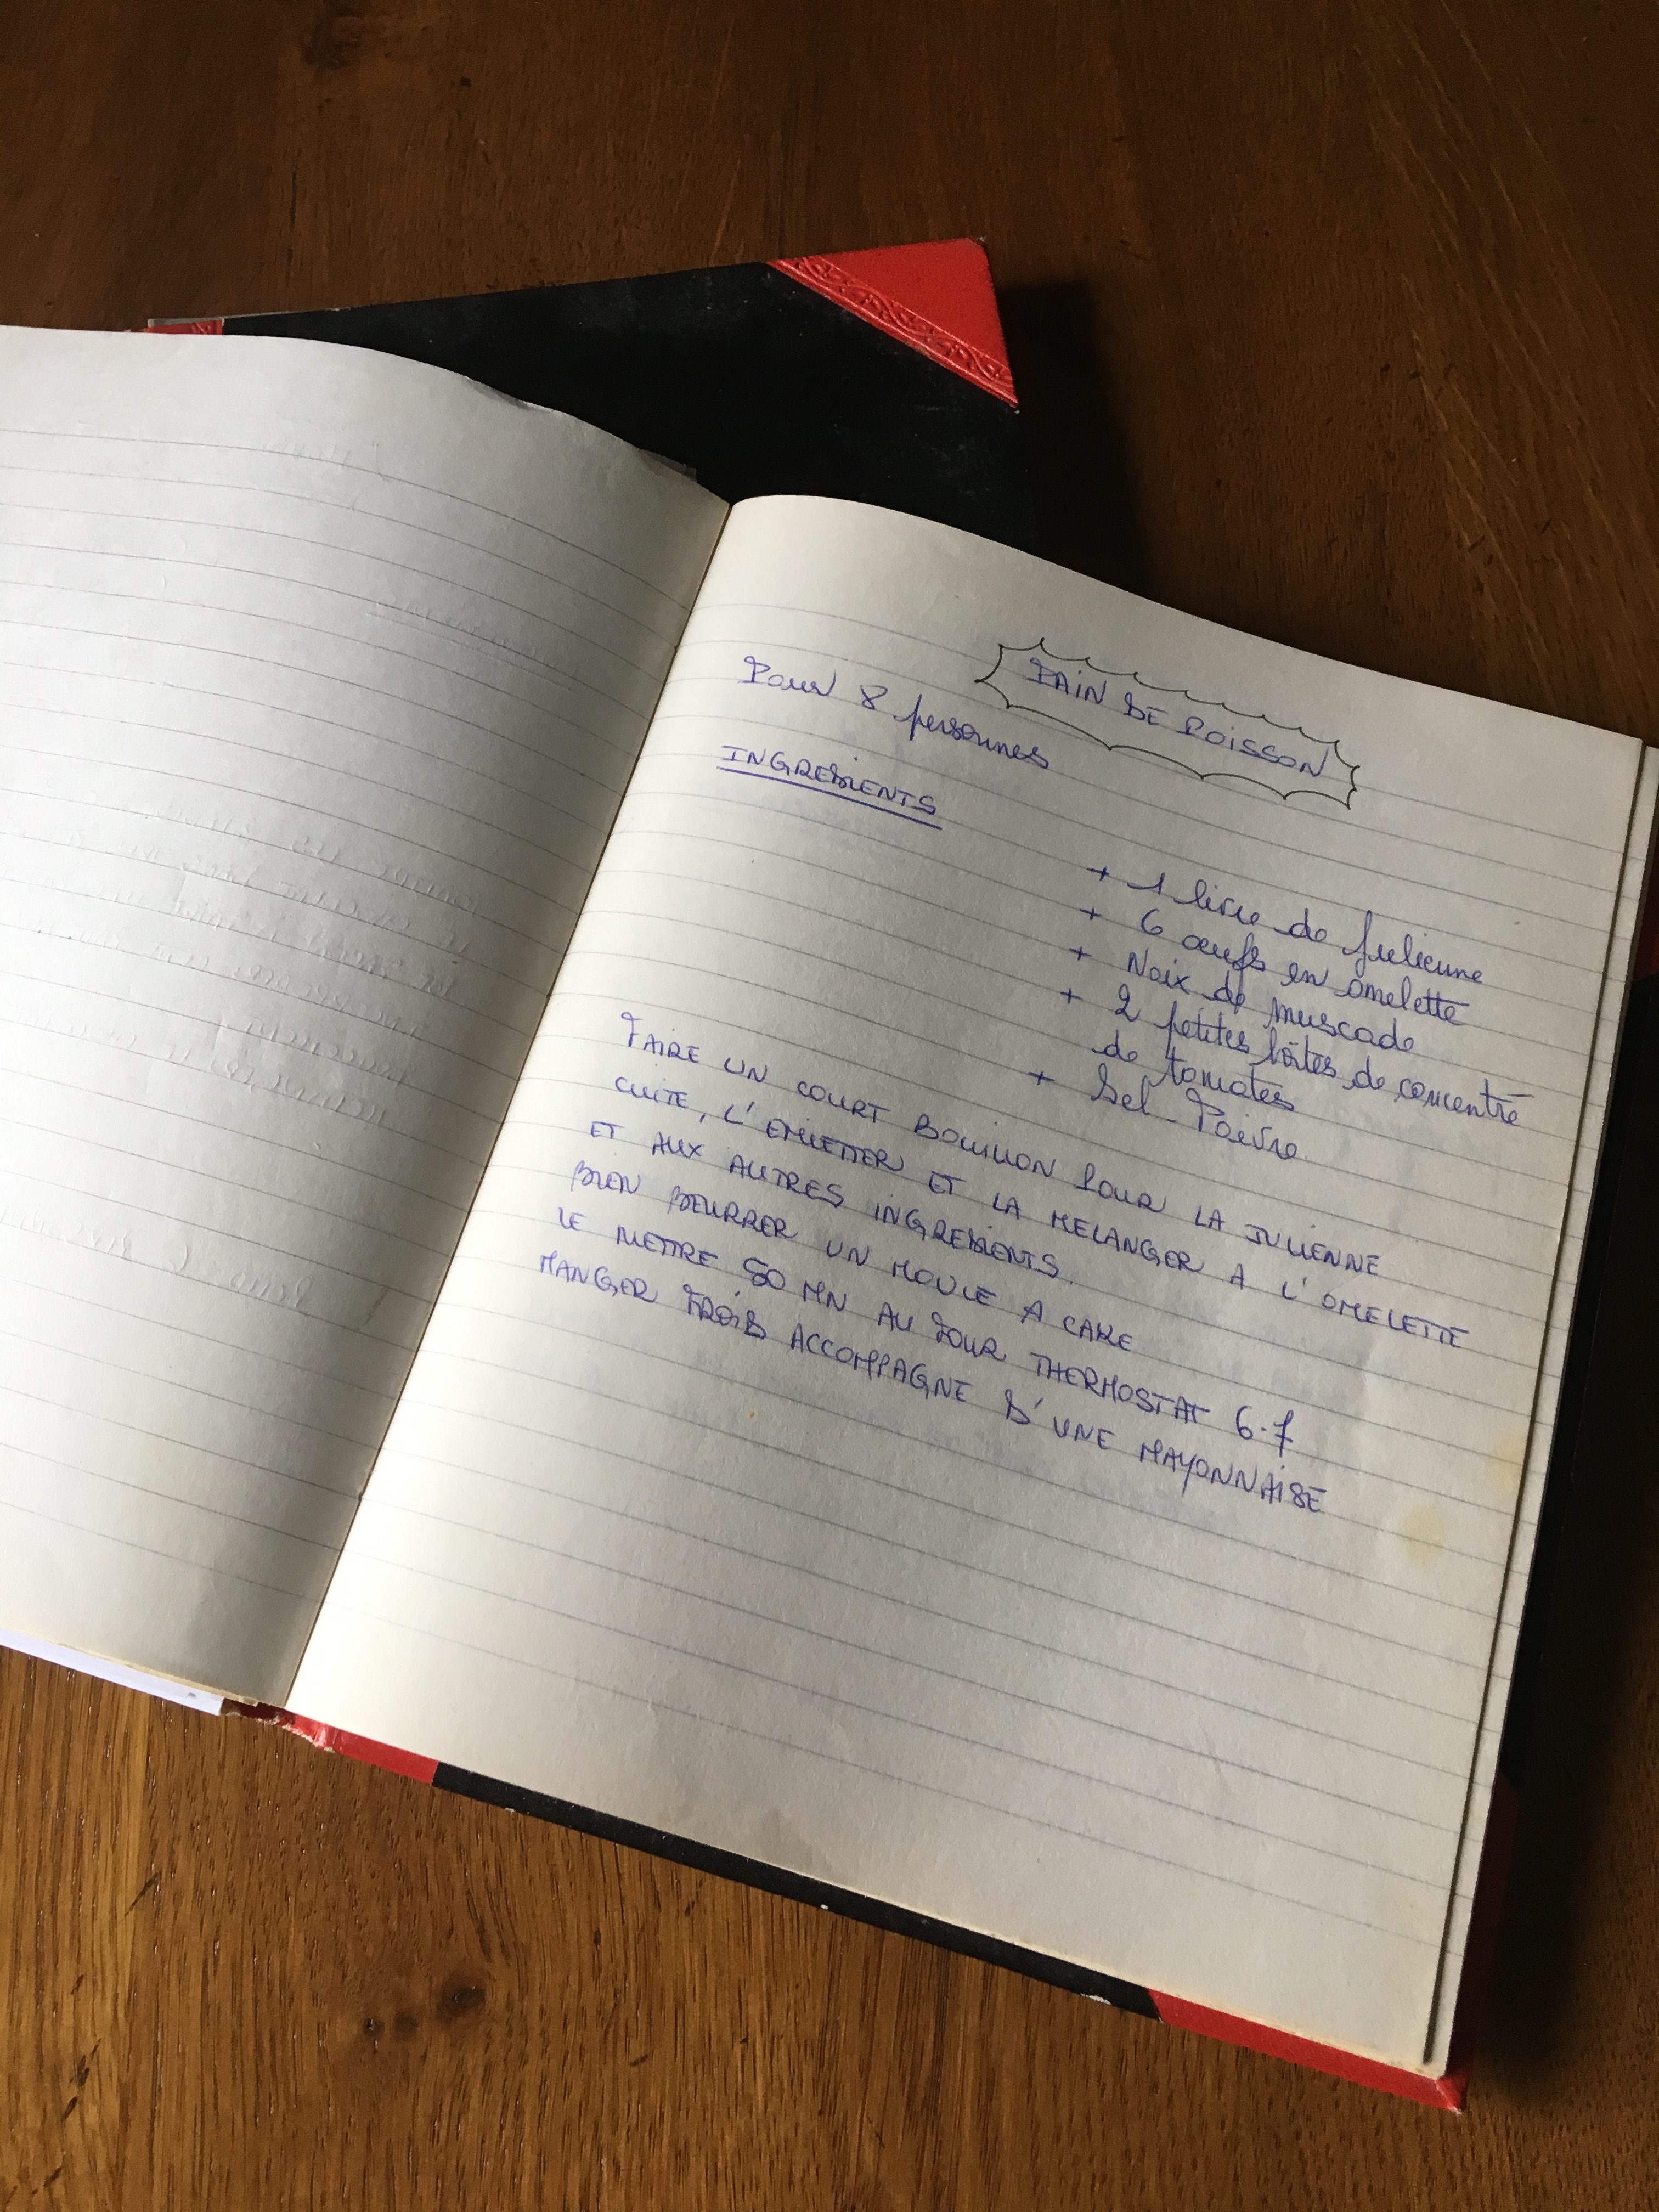 PAIN DE POISSON
Pour 8 personnes
INGREDIENTS
+ 1 livre de julienne
+ 6 œufs en omelette
+ Noix de muscade
+ 2 petites boîtes de concentré
de tomates
+ Sel - Poivre
FAIRE UN COURT BOUILLON POUR LA JULIENNE
CUITE, L'EMIETTER ET LA MELANGER A L'OMELETTE
ET AUX AUTRES INGREDIENTS.
BIEN BEURRER UN MOULE A CAKE
LE METTRE 50 MN AU FOUR THERMOSTAT 6-7
MANGER FROID ACCOMPAGNE D'UNE MAYONNAISE